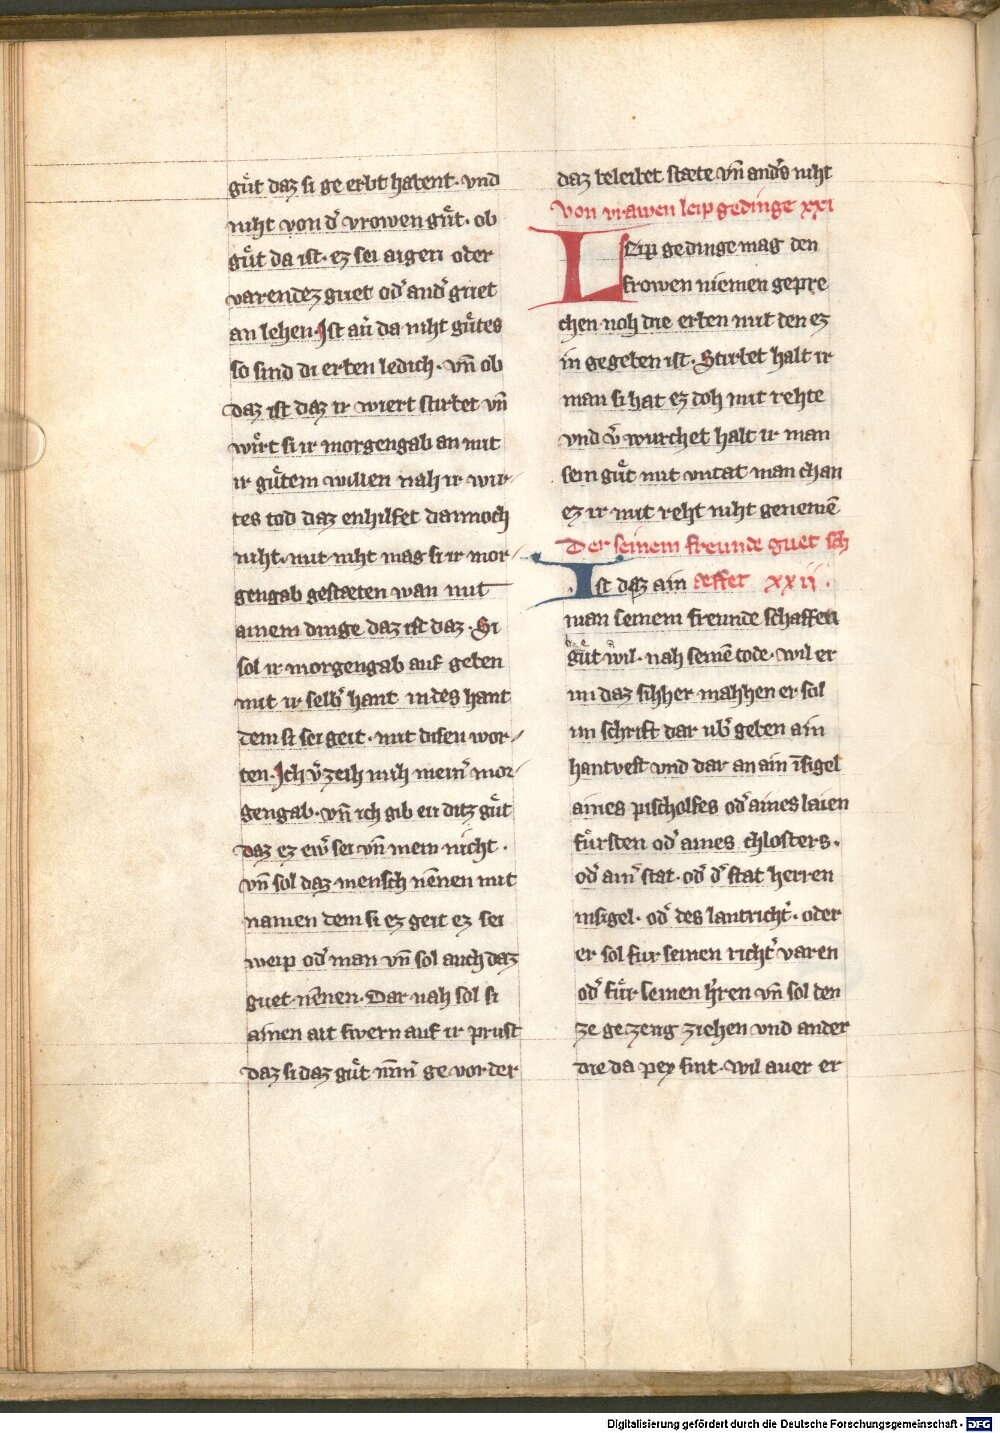 guͤt daz si ge erbt habent · vnd
niht von d̾ vrowen guͤt · ob
guͤt da ist · ez sei aigen oder
varendez guet od̾ and̾ guet
an lehen · Ist au̾ da niht guͤtes
so sind di erben ledich · vn̄ ob
daz ist daz ir wiert stirbet vn̄
wirt si ir morgengab an mit
ir guͤtem willen nah ir wir⸗
tes tod daz enhilfet dannoch
niht · mit niht mag si ir mor⸗
gengab gestæten wan mit
ainem dinge daz ist daz · Si
sol ir morgengab auf geben
mit ir selb̾ hant in des hant
dem si sei geit · mit disen wor⸗
ten · Ich v̾zeih mih mein̾ mor⸗
gengab · vn̄ ich gib eu ditz guͤt
daz ez ew̾ sei vn̄ mein nicht ·
vn̄ sol daz mensch nēnen mit
namen dem si ez geit ez sei
weip od̾ man vn̄ sol auch daz
guet nēnen · Dar nah sol si
ainen ait swern auf ir prust
daz si daz guͤt ge vorder
daz beleibet stæte vn̄ and̾s niht
Von vrawen leip gedinge xxi
Leip gedinge mag den
frowen niemen gepre
chen noh die erben mit den ez
in gegeben ist · Stirbet halt ir
man si hat ez doh mit rehte
vnd v̾ wurchet halt ir man
sein guͤt mit vntat man chan
ez ir mit reht niht genemē
Der seinem freunde guet sch
Ist daz ain æffet xxii ·
man seinem freunde schaffen
guͤt wil · nah seinē tode · wil er
im daz sihher mahhen er sol
im schrift dar ub̾ geben ain
hantvest vnd dar an ain īsigel
aines pischolfes od̾ aines laien
fuͤrsten od̾ aines chlosters ·
od̾ ain̾ stat · od̾ d̾ stat herren
insigel · od̾ des lantricht̾ · oder
er sol fur seinen richt̾ varen
od̾ fuͤr seinen h̾ren vn̄ sol den
ze gezeug ziehen vnd ander
die da pey sint · wil auer er
Digitalisierung gefördert durch die Deutsche Forschungsgemeinschaft - DFG